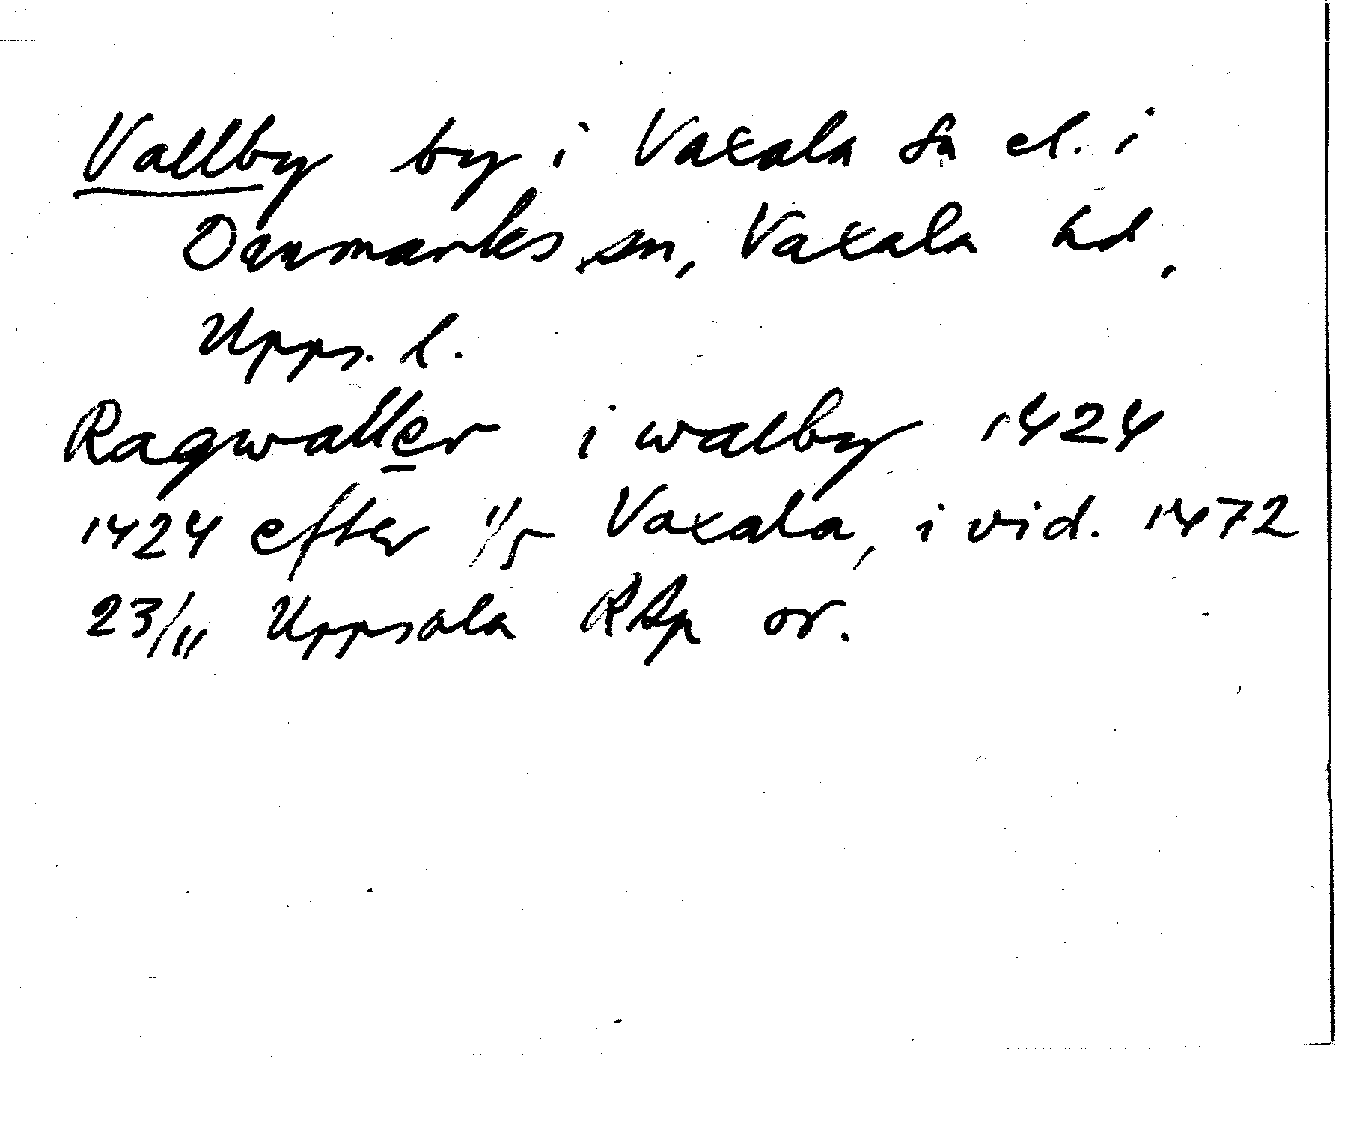 Vallby by i Vaxala sn el. i
Danmarks sn, Vaxala hd,
Upps. l.
Ragwaller i walby 1424
1424 efter 1/5 Vaxala, i vid. 1472
23/11 Uppsala RAp or.